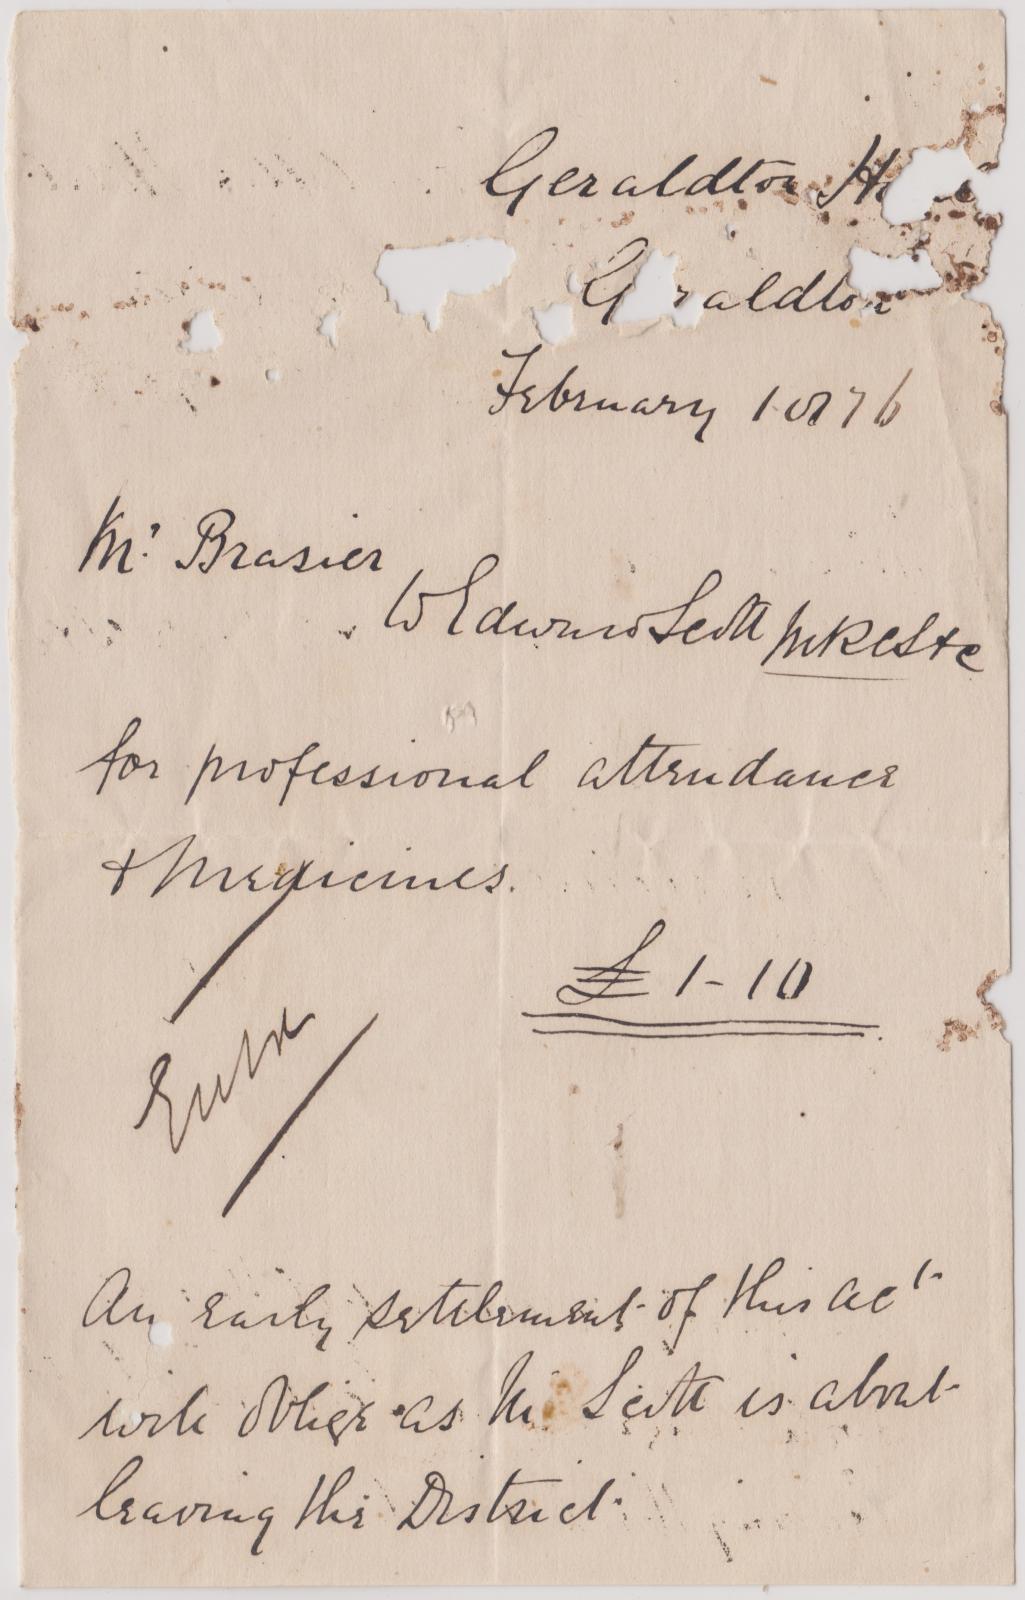 Geraldton
Geraldton
February 1876
Mr Brasier
W Edward Scott MRCS &c
for professional attendance
& Medicines.
£ 1-10
An early settlement of this act
will oblige as Mr Scott is about
leaving the District